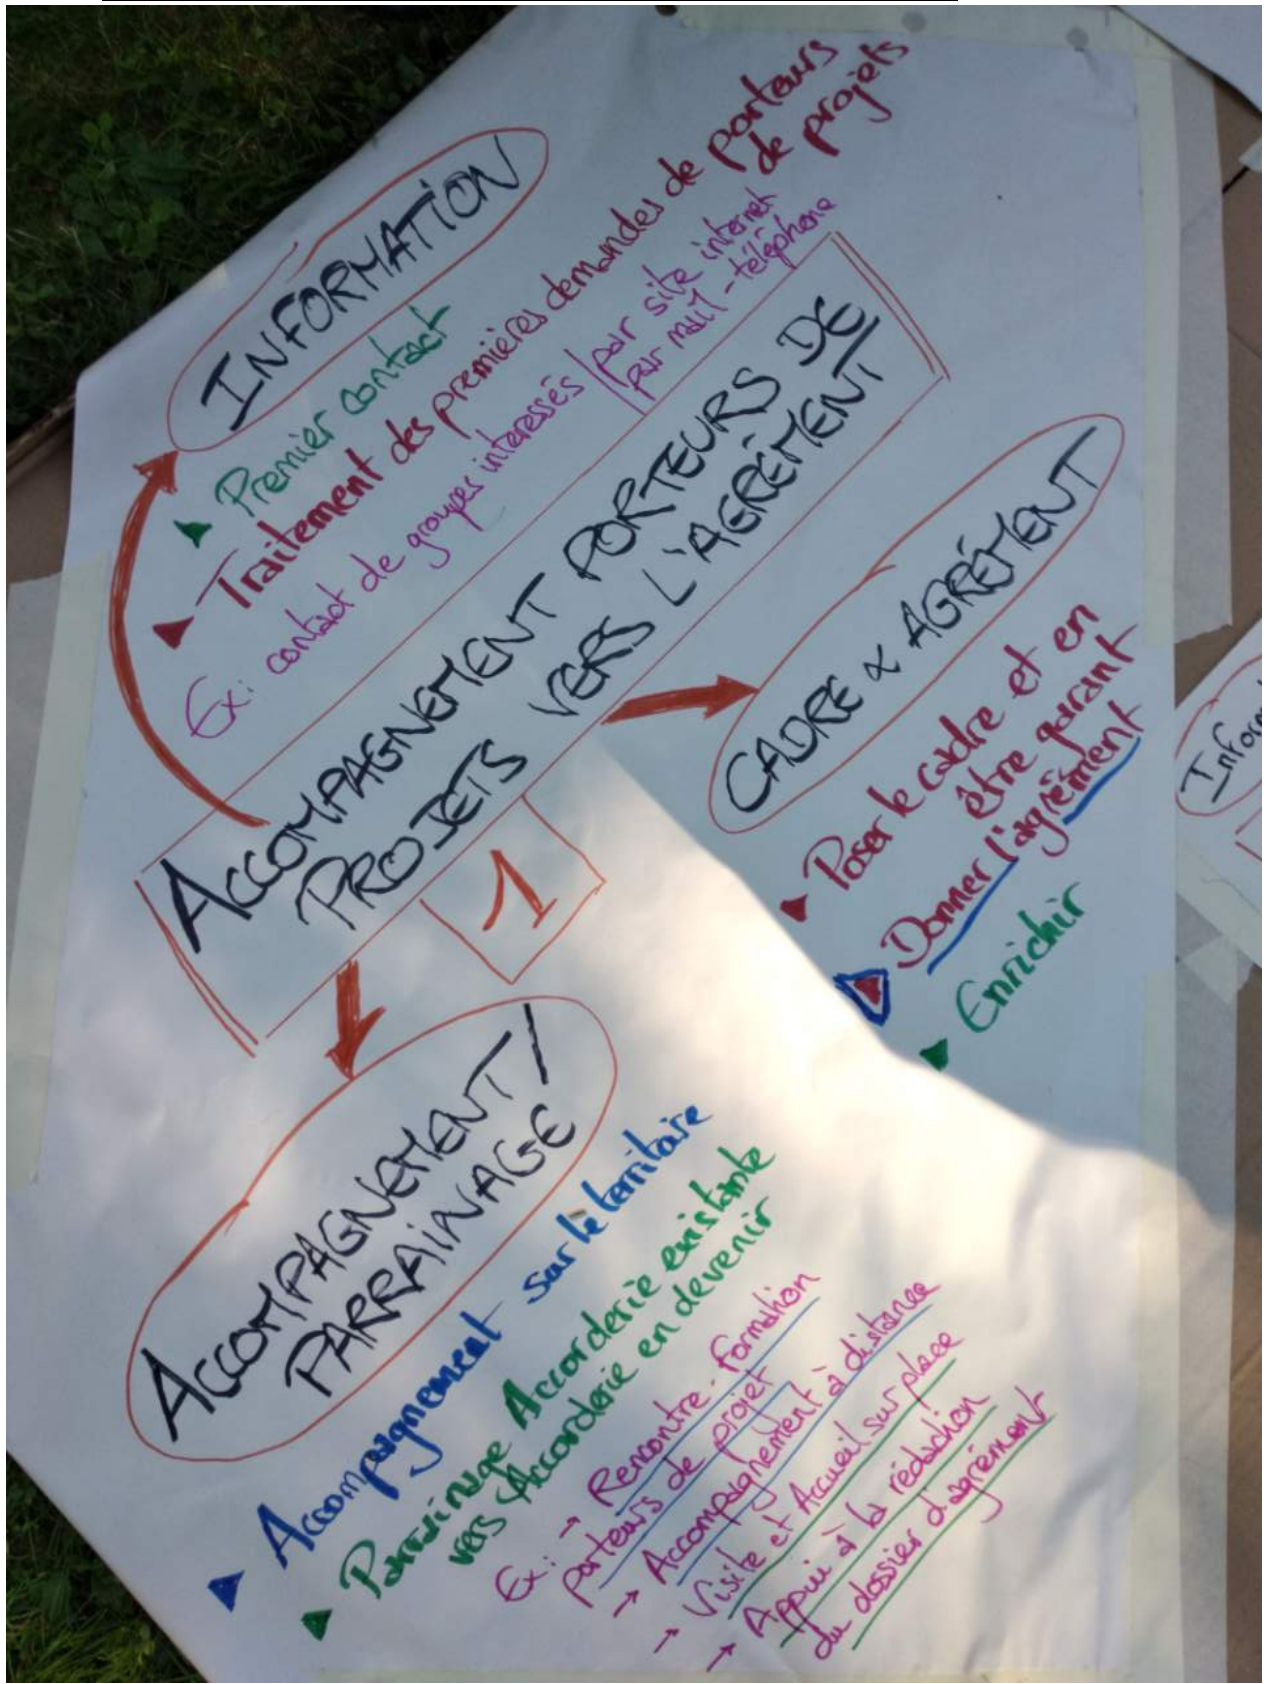 INFORMATION
Premier contact
Traitement des premières demandes de porteurs
de projets
Ex: contact de groupes interessés par site internet
par mail - téléphone
ACCOMPAGNEMENT PORTEURS DE
PROJETS VERS L'AGRÉMENT
1
CADRE & AGRÉMENT
Poser le cadre et en
être garant
Donner l'agrément
Enrichir
ACCOMPAGNEMENT /
PARRAINAGE
Accompagnement sur le territoire
Parrainage Accorderie existante
vers Accorderie en devenir
Ex: → Rencontre - Formation
porteurs de projet
→ Accompagnement à distance
→ Visite et Accueil sur place
→ Appui à la rédaction
du dossier d'agrément
Inform